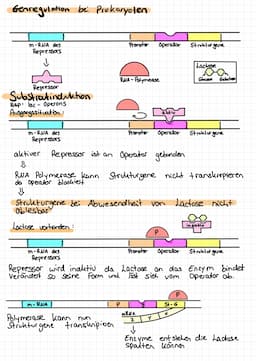 Genregulation bei Prokaryoten
m-RNA des Repressors
Promotor Operator Strukturgene
Repressor
RNA-Polymerase
Lactose
Glucose Galactose
Substratinduktion
BSP: lac-Operons
Ausgangssituation:
m-RNA des Repressors
Promotor Operator Strukturgene
aktiver Repressor ist an Operator gebunden
RNA Polymerase kann Strukturgene nicht transkripieren
da Operator blockiert
Strukturgene bei Abwesenheit von Lactose nicht
ablesbar
Lactose vorhanden:
P
inaktiv
Repressor wird inaktiv da Lactose an das Enzym bindet
verändert so seine Form und löst sich vom Operator ab.
m-RNA
P
St-G
P
mRNA
Polymerase kann nun
Strukturgene transkripieren
Enzyme entstehen die Lactose
spalten können